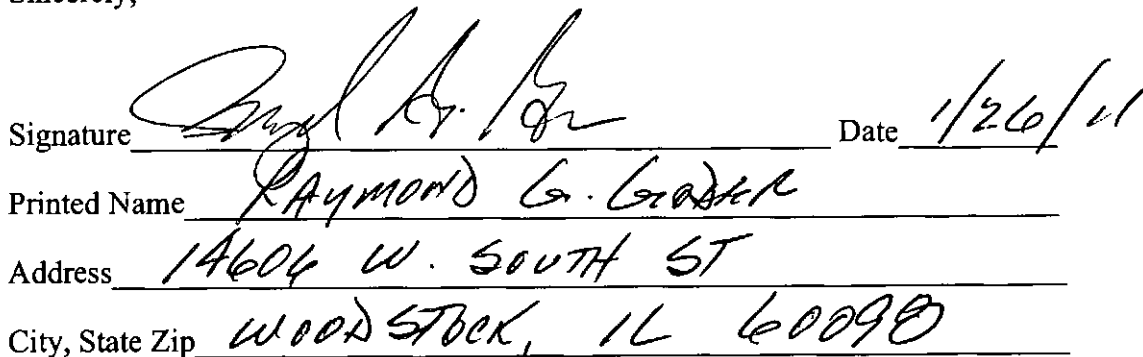 Sincerely,
Signature Date 1/26/11
Printed Name RAYMOND G.
Address 14606 W. SOUTH ST
City, State Zip WOODSTOCK, IL 60098